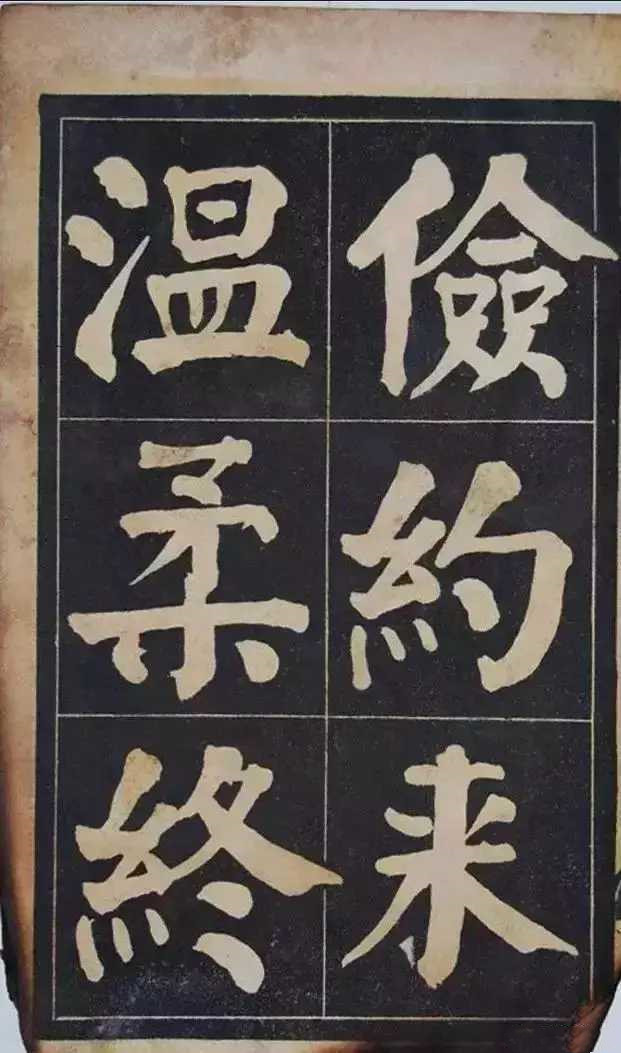 儉約来
温柔終